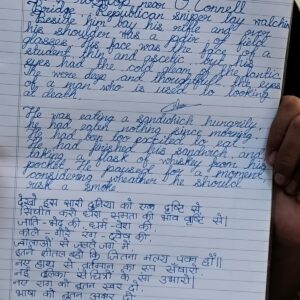 near O'Connell
Bridge, Republican sniper lay watching
Beside him lay his rifle and over
his shoulder was a pair field
glasses. His face was the face of a
student thin and ascetic, but his
eyes had the cold gleam of the fanatic
The were deep and thoughtful, the eyes
of a man who is used to looking
at death.
He was eating a sandwich hungrily,
he had eaten nothing since morning.
He had been too excited to eat.
He had finished his sandwich and
taking a flask of whiskey from his
pocket. He paused for a moment
considering wheather he should
risk a smoke.
देखो इस सारी दुनिया को एक दृष्टि से
सिंचित करो धरा समता की भाव वृष्टि से।
जाति-भेद की, धर्म-वेश की
काले-गोरे रंग-द्वेष की
ज्वालाओं से जलते जग में
इतने शीतल बहो कि जितना मलय पवन है।
नए हाथ से वर्तमान का रूप सँवारो
नई तूलिका से चित्रों के रंग उभारो।
नए राग को नूतन स्वर दो
भाषा को नूतन अक्षर दो